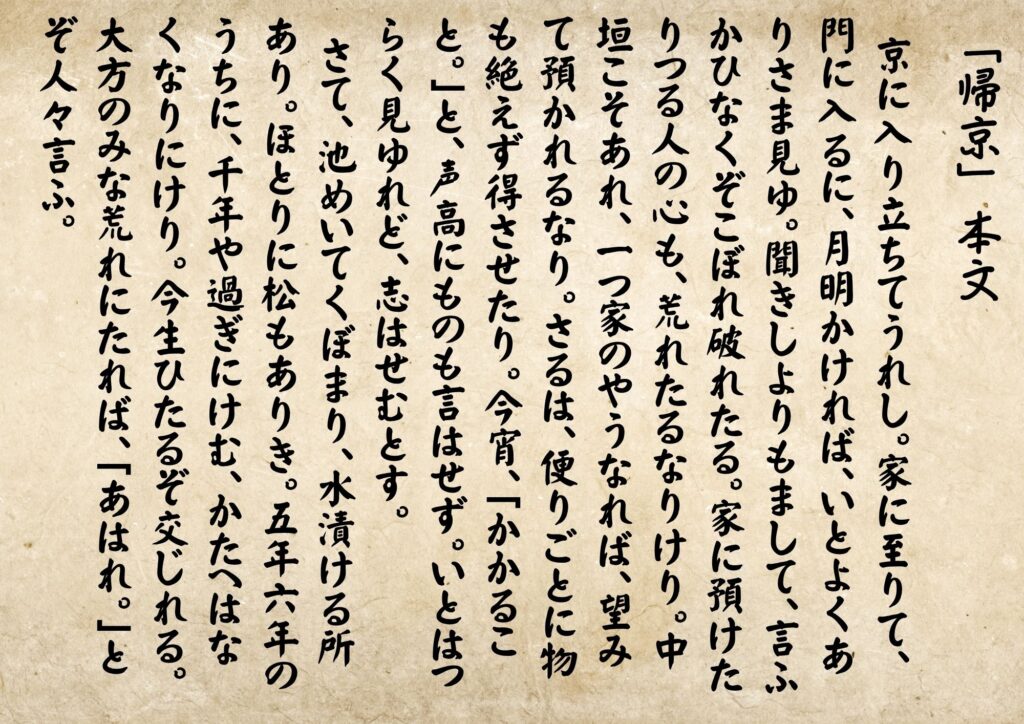 「帰京」 本文
京に入り立ちてうれし。家に至りて、
門に入るに、月明かければ、いとよくあ
りさま見ゆ。聞きしよりもまして、言ふ
かひなくぞこぼれ破れたる。家に預けた
りつる人の心も、荒れたるなりけり。中
垣こそあれ、一つ家のやうなれば、望み
て預かれるなり。さるは、便りごとに物
も絶えず得させたり。今宵、「かかるこ
と。」と、声高にものも言はせず。いとはつ
らく見ゆれど、志はせむとす。
さて、池めいてくぼまり、水漬ける所
あり。ほとりに松もありき。五年六年の
うちに、千年や過ぎにけむ、かたへはな
くなりにけり。今生ひたるぞ交じれる。
大方のみな荒れにたれば、「あはれ。」と
ぞ人々言ふ。